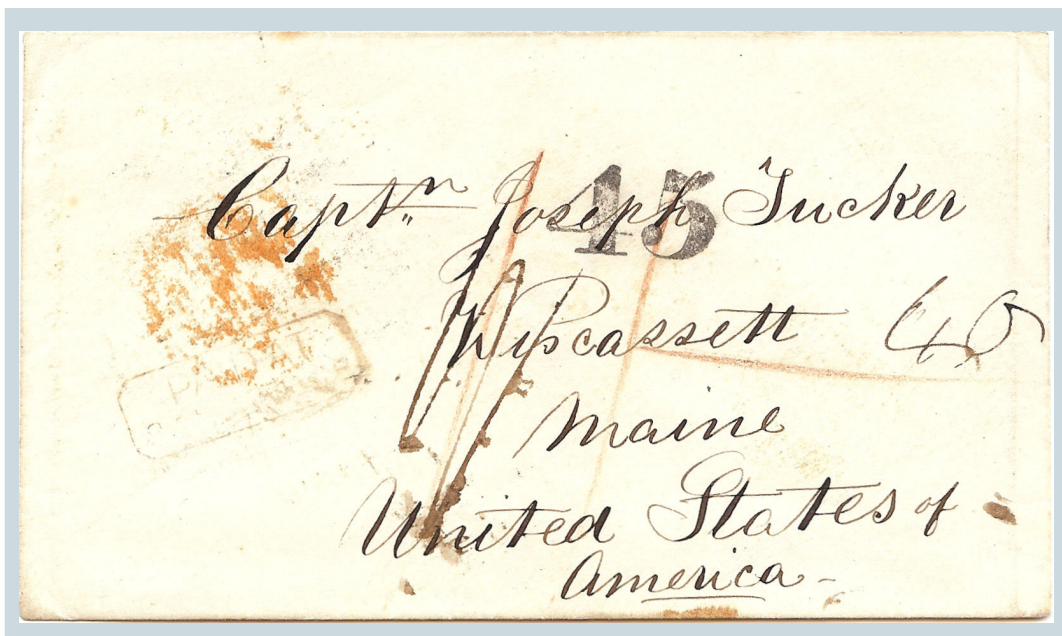 Captn Joseph Tucker
45
Wiscassett
40
Maine
United States of
America
PAID AT